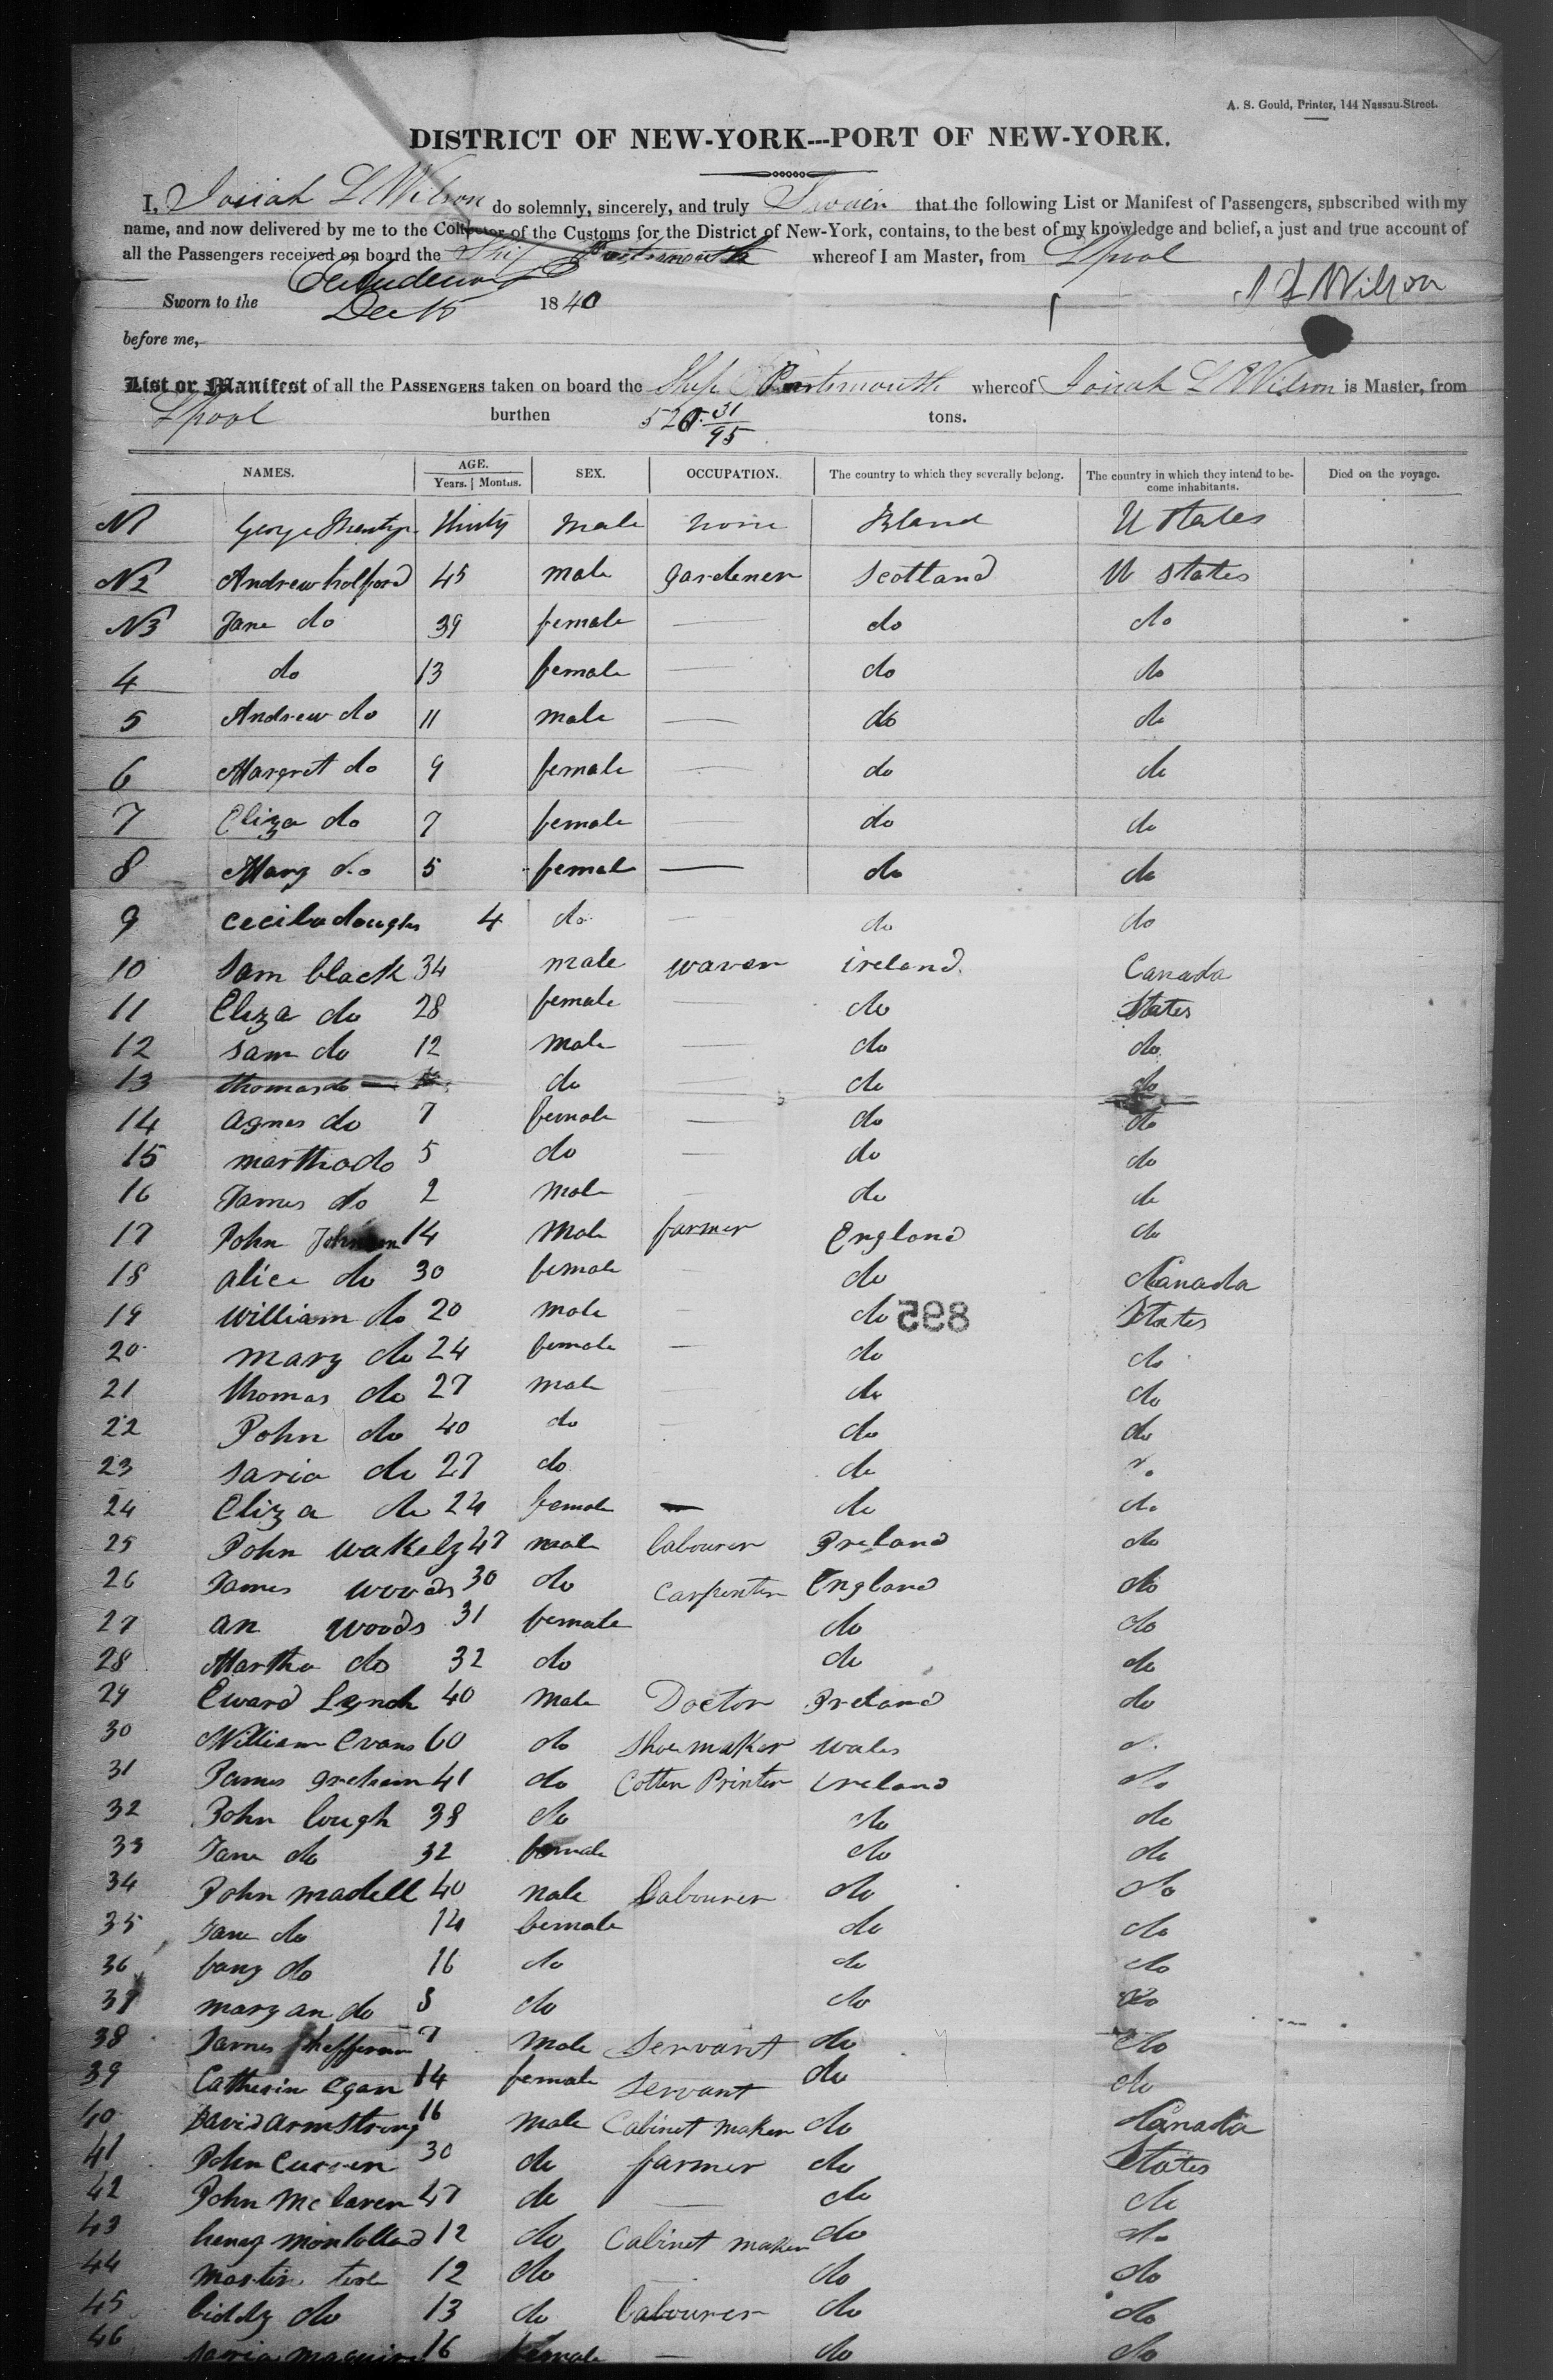 A. S. Gould, Printer, 144 Nassau-Street.
DISTRICT OF NEW-YORK---PORT OF NEW-YORK.
I, Josiah L Wilson do solemnly, sincerely, and truly Swear that the following List or Manifest of Passengers, subscribed with my
name, and now delivered by me to the Collector of the Customs for the District of New-York, contains, to the best of my knowledge and belief, a just and true account of
all the Passengers received on board the Ship Portsmouth whereof I am Master, from Lpool
J L Wilson
Sworn to the Dec 15 1840
before me,
List or Manifest of all the PASSENGERS taken on board the Ship Portsmouth whereof Josiah L Wilson is Master, from
Lpool burthen 520 31/95 tons.
NAMES. AGE. Years. Months. SEX. OCCUPATION. The country to which they severally belong. The country in which they intend to become inhabitants. Died on the voyage.
N1 George thirty male none U States
N2 Andrew holford 45 male gardener Scotland U States
N3 Jane do 39 female — do do
4 do 13 female — do do
5 Andrew do 11 male — do do
6 Margret do 9 female — do do
7 Eliza do 7 female — do do
8 Mary do 5 female — do do
9 4 do — do do
10 Sam black 34 male waver ireland Canada
11 Eliza do 28 female — do States
12 sam do 12 male — do do
13 thomas do do — do do
14 agnes do 7 female — do do
15 martha do 5 do — do do
16 James do 2 male — do do
17 John Johnson 14 male farmer England do
18 alice do 30 female — do Canada
19 William do 20 male — do States
895
20 mary do 24 female — do do
21 thomas do 27 male — do do
22 John do 40 do — do do
23 saria do 27 do do do
24 Eliza do 24 female — do do
25 John Wakely 47 male labourer Ireland do
26 James woods 30 do carpenter England do
27 an woods 31 female do do
28 Martha do 32 do do do
29 Eward Lynch 40 male Doctor Ireland do
30 William Evans 60 do shoe maker wales do
31 James greham 41 do Cotten Printer ireland do
32 John lough 38 do do do
33 Jane do 32 female do do
34 John madell 40 male labourer do do
35 Jane do 14 female do do
36 fany do 16 do do do
37 mary an do 8 do do do
38 James 7 male Servant do do
39 Catherin Egan 14 female servant do do
40 David armstrong 16 male Cabinet maker do Canada
41 John Curren 30 do farmer do States
42 John Mc laren 47 do — do do
43 12 do Cabinet maker do do
44 martin 12 do — do do
45 biddy do 13 do labourer do do
46 saria maguire 16 female — do do